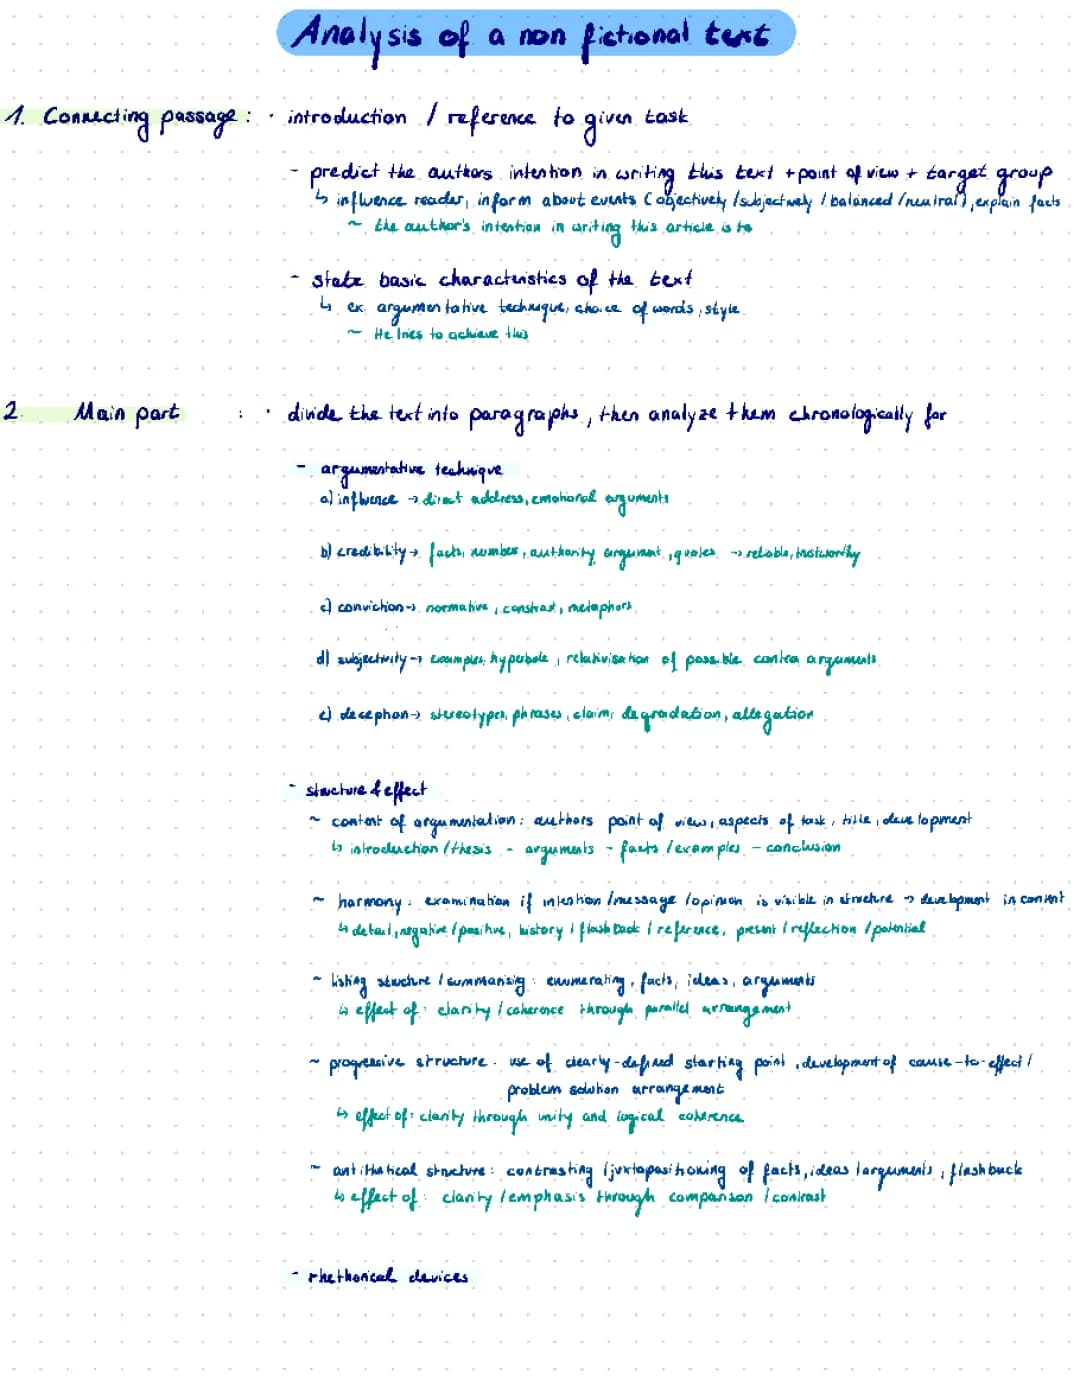 Analysis of a non fictional text
1. Connecting passage : · introduction / reference to given task
- predict the authors intention in writing this text + point of view + target group
↳ influence reader, inform about events (objectively / subjectively / balanced / neutral), explain facts
~ the author's intention in writing this article is to
- state basic characteristics of the text
↳ ex. argumentative technique, choice of words, style
~ He tries to achieve this
2. Main part : · divide the text into paragraphs, then analyze them chronologically for
- argumentative technique
a) influence → direct address, emotional arguments
b) credibility → facts, number, authority argument, quotes → reliable, trustworthy
c) conviction → normative, contrast, metaphors
d) subjectivity → examples, hyperbole, relativisation of possible contra arguments
e) deception → stereotypes, phrases, claim, degradation, allegation
- structure & effect
~ content of argumentation: authors point of view, aspects of task, title, development
↳ introduction / thesis - arguments - facts / examples - conclusion
~ harmony: examination if intention / message / opinion is visible in structure → development in content
↳ detail, negative / positive, history / flashback / reference, present / reflection / potential
~ listing structure / summarisig: enumerating, facts, ideas, arguments
↳ effect of: clarity / coherence through parallel arrangement
~ progressive structure: use of clearly-defined starting point, development of cause-to-effect /
problem solution arrangement
↳ effect of: clarity through unity and logical coherence
~ antithetical structure: contrasting / juxtapositioning of facts, ideas / arguments, flashback
↳ effect of: clarity / emphasis through comparison / contrast
- rhethorical devices